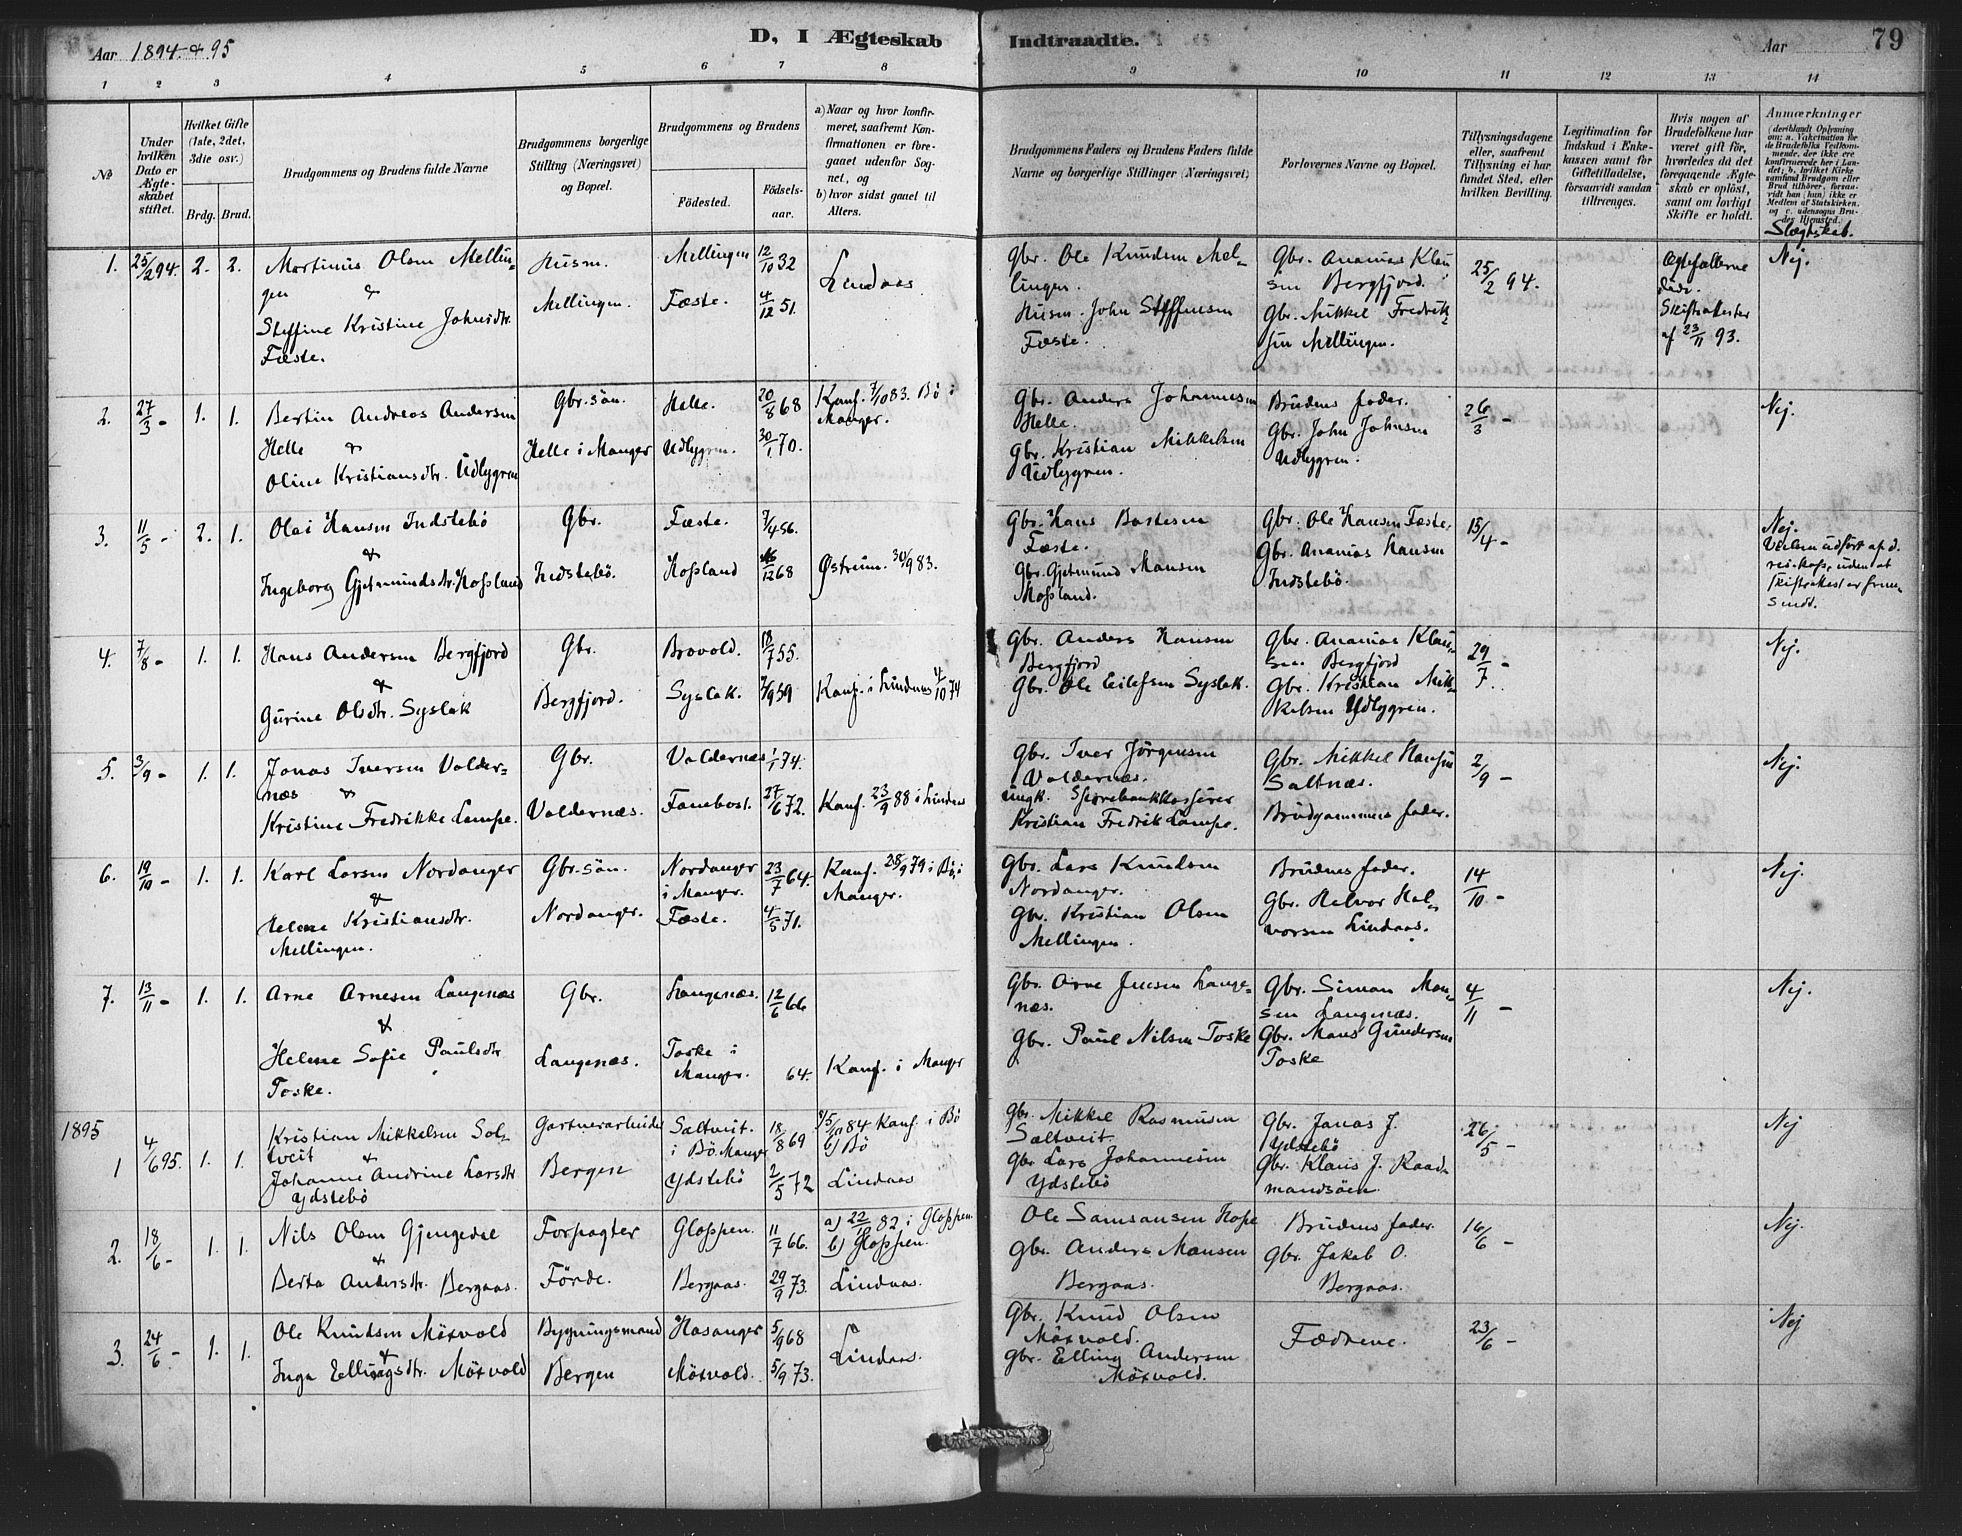 Aar 1894 & 95
D, I Ægteskab
Indtraadte.
Aar
79
1 2 3 4 5 6 7 8 9 10 11 12 13 14
No
Under hvilken Dato er Ægteskabet stiftet.
Hvilket Gifte (1ste, 2det, 3die osv.)
Brdg. Brud.
Brudgommens og Brudens fulde Navne
Brudgommens borgerlige Stilling (Næringsvei) og Bopæl.
Brudgommens og Brudens
Fødested.
Fødselsaar.
a) Naar og hvor konfirmeret, saafremt Konfirmationen er foregaaet udenfor Sognet, og
b) hvor sidst gaaet til Alters.
Brudgommens Faders og Brudens Faders fulde Navne og borgerlige Stillinger (Næringsvei)
Forlovernes Navne og Bopæl.
Tillysningsdagene eller, saafremt Tillysning ei har fundet Sted, efter hvilken Bevilling.
Legitimation for Indskud i Enkekassen samt for Giftetilladelse, forsaavidt saadan tiltrænges.
Hvis nogen af Brudefolkene har været gift før, hvorledes da det foregaaende Ægteskab er opløst, samt om lovligt Skifte er holdt.
Anmærkninger
Slægtskab.
1. 25/2 94. 2. 2.
Martinus Olsen Mellin-
gen
&
Steffine Kristine Johnsdtr.
Fæste.
Husm.
Mellingen.
Mellingen 12/10 32
Fæste. 4/12 51.
Lindaas
Gbr. Ole Knudsen Mel-
lingen.
Husm. John Steffensen
Fæste.
Gbr. Ananias Klau-
sen Bergfjord.
Gbr. Mikkel Fredrik-
sen Mellingen.
25/2 94.
Ægtefællerne
døde.
Skifteattester
af 23/11 93.
Nej.
2. 27/3 - 1. 1.
Bertin Andreas Andersen
Helle &
Oline Kristiansdtr. Udlygren
Gbr. søn.
Helle i Manger
Helle. 20/8 68
Udlygren. 30/1 70.
Konf. 7/10 83. Bö i
Manger.
Gbr. Anders Johannesen
Helle.
Gbr. Kristian Mikkelsen
Udlygren.
Brudens fader.
Gbr. John Johnsen
Udlygren.
26/3 -
Nej.
3. 11/5 - 2. 1.
Olai Hansen Indstebö
&
Ingeborg Gjetmundsdtr. Hosland
Gbr.
Indstebö.
Fæste. 7/4 56.
Hosland 16/12 68
Østreim. 30/9 83.
Gbr. Hans Bastesen
Fæste.
Gbr. Gjetmund Mansen
Hosland.
Gbr. Ole Hansen Fæste.
Gbr. Ananias Hansen
Indstebö.
15/4 -
Nej.
Vielsen udført af
uden at
skifteattest er frem-
sendt.
4. 7/8 - 1. 1.
Hans Andersen Bergfjord
&
Gurine Olsdtr. Syslak
Gbr.
Bergfjord.
Brovold. 18/7 55.
Syslak. 7/9 59
Konf. i Lindaas 4/10 74
Gbr. Anders Hansen
Bergfjord
Gbr. Ole Eilefsen Syslak.
Gbr. Ananias Klau-
sen Bergfjord
Gbr. Kristian Mik-
kelsen Udlygren.
29/7 -
Nej.
5. 3/9 - 1. 1.
Jonas Iversen Valder-
næs &
Kristine Fredrikke Lampe.
Gbr.
Valdernæs.
Valdernæs 1/1 74.
Fonebost. 27/6 72.
Konf. 23/9 88 i Lindaas
Gbr. Iver Jörgensen
Valdernæs.
ungk. Sparebankkasserer
Kristian Fredrik Lampe.
Gbr. Mikkel Hansen
Saltnæs.
Brudgommens fader.
2/9 -
Nej.
6. 19/10 - 1. 1.
Karl Larsen Nordanger
&
Helene Kristiansdtr.
Mellingen.
Gbr. søn.
Nordanger.
Nordanger
i Manger. 23/7 64.
Fæste. 4/5 71.
Konf. 28/9 79 i Bö i
Manger.
Gbr. Lars Knudsen
Nordanger.
Gbr. Kristian Olsen
Mellingen.
Brudens fader.
Gbr. Halvor Hal-
vorsen Lindaas.
14/10 -
Nej.
7. 13/11 - 1. 1.
Arne Arnesen Langenæs
&
Helene Sofie Paulsdtr.
Toske.
Gbr.
Langenæs.
Langenæs. 12/6 66
Toske i
Manger. 64.
Konf. i Manger
Gbr. Arne Jensen Lange-
næs.
Gbr. Paul Nilsen Toske
Gbr. Simon Mon-
sen Langenæs.
Gbr. Mons Gundersen
Toske
4/11 -
Nej.
1895
1 4/6 95. 1. 1.
Kristian Mikkelsen Sol-
tveit
&
Johanne Andrine Larsdtr
Ydstebö
Gartnerarbeider
Bergen
Saltveit.
i Bö. Manger 18/8 69
Ydstebö 2/5 72
84 Konf. i Bö
b) Bö
Lindaas
Gbr. Mikkel Rasmusen
Saltveit
Gbr Lars Johannesen
Ydstebö
Gbr. Jonas J.
Ydstebö
Gbr. Klaus J. Raad-
mandsöen.
26/5 -
Nej
2. 18/6 - 1. 1.
Nils Olsen Gjengedal
&
Berta Andersdtr. Bergaas.
Forpagter
Förde.
Gloppen. 11/7 66.
Bergaas. 29/9 73.
a) 22/10 82 i Gloppen.
b) Gloppen.
Lindaas.
Ole Samsonsen Hope
Gbr. Anders Monsen
Bergaas.
Brudens fader.
Gbr. Jakob O.
Bergaas.
16/6 -
Nej.
3. 24/6 - 1. 1.
Ole Knudsen Möxvold
&
Inga Ellingsdtr. Möxvold
Bygningsmand
Bergen
Hosanger 5/9 68
Möxvold. 5/9 73.
Lindaas.
Gbr. Knud Olsen
Möxvold.
Gbr. Elling Andersen
Möxvold.
Fædrene.
23/6 -
Nej